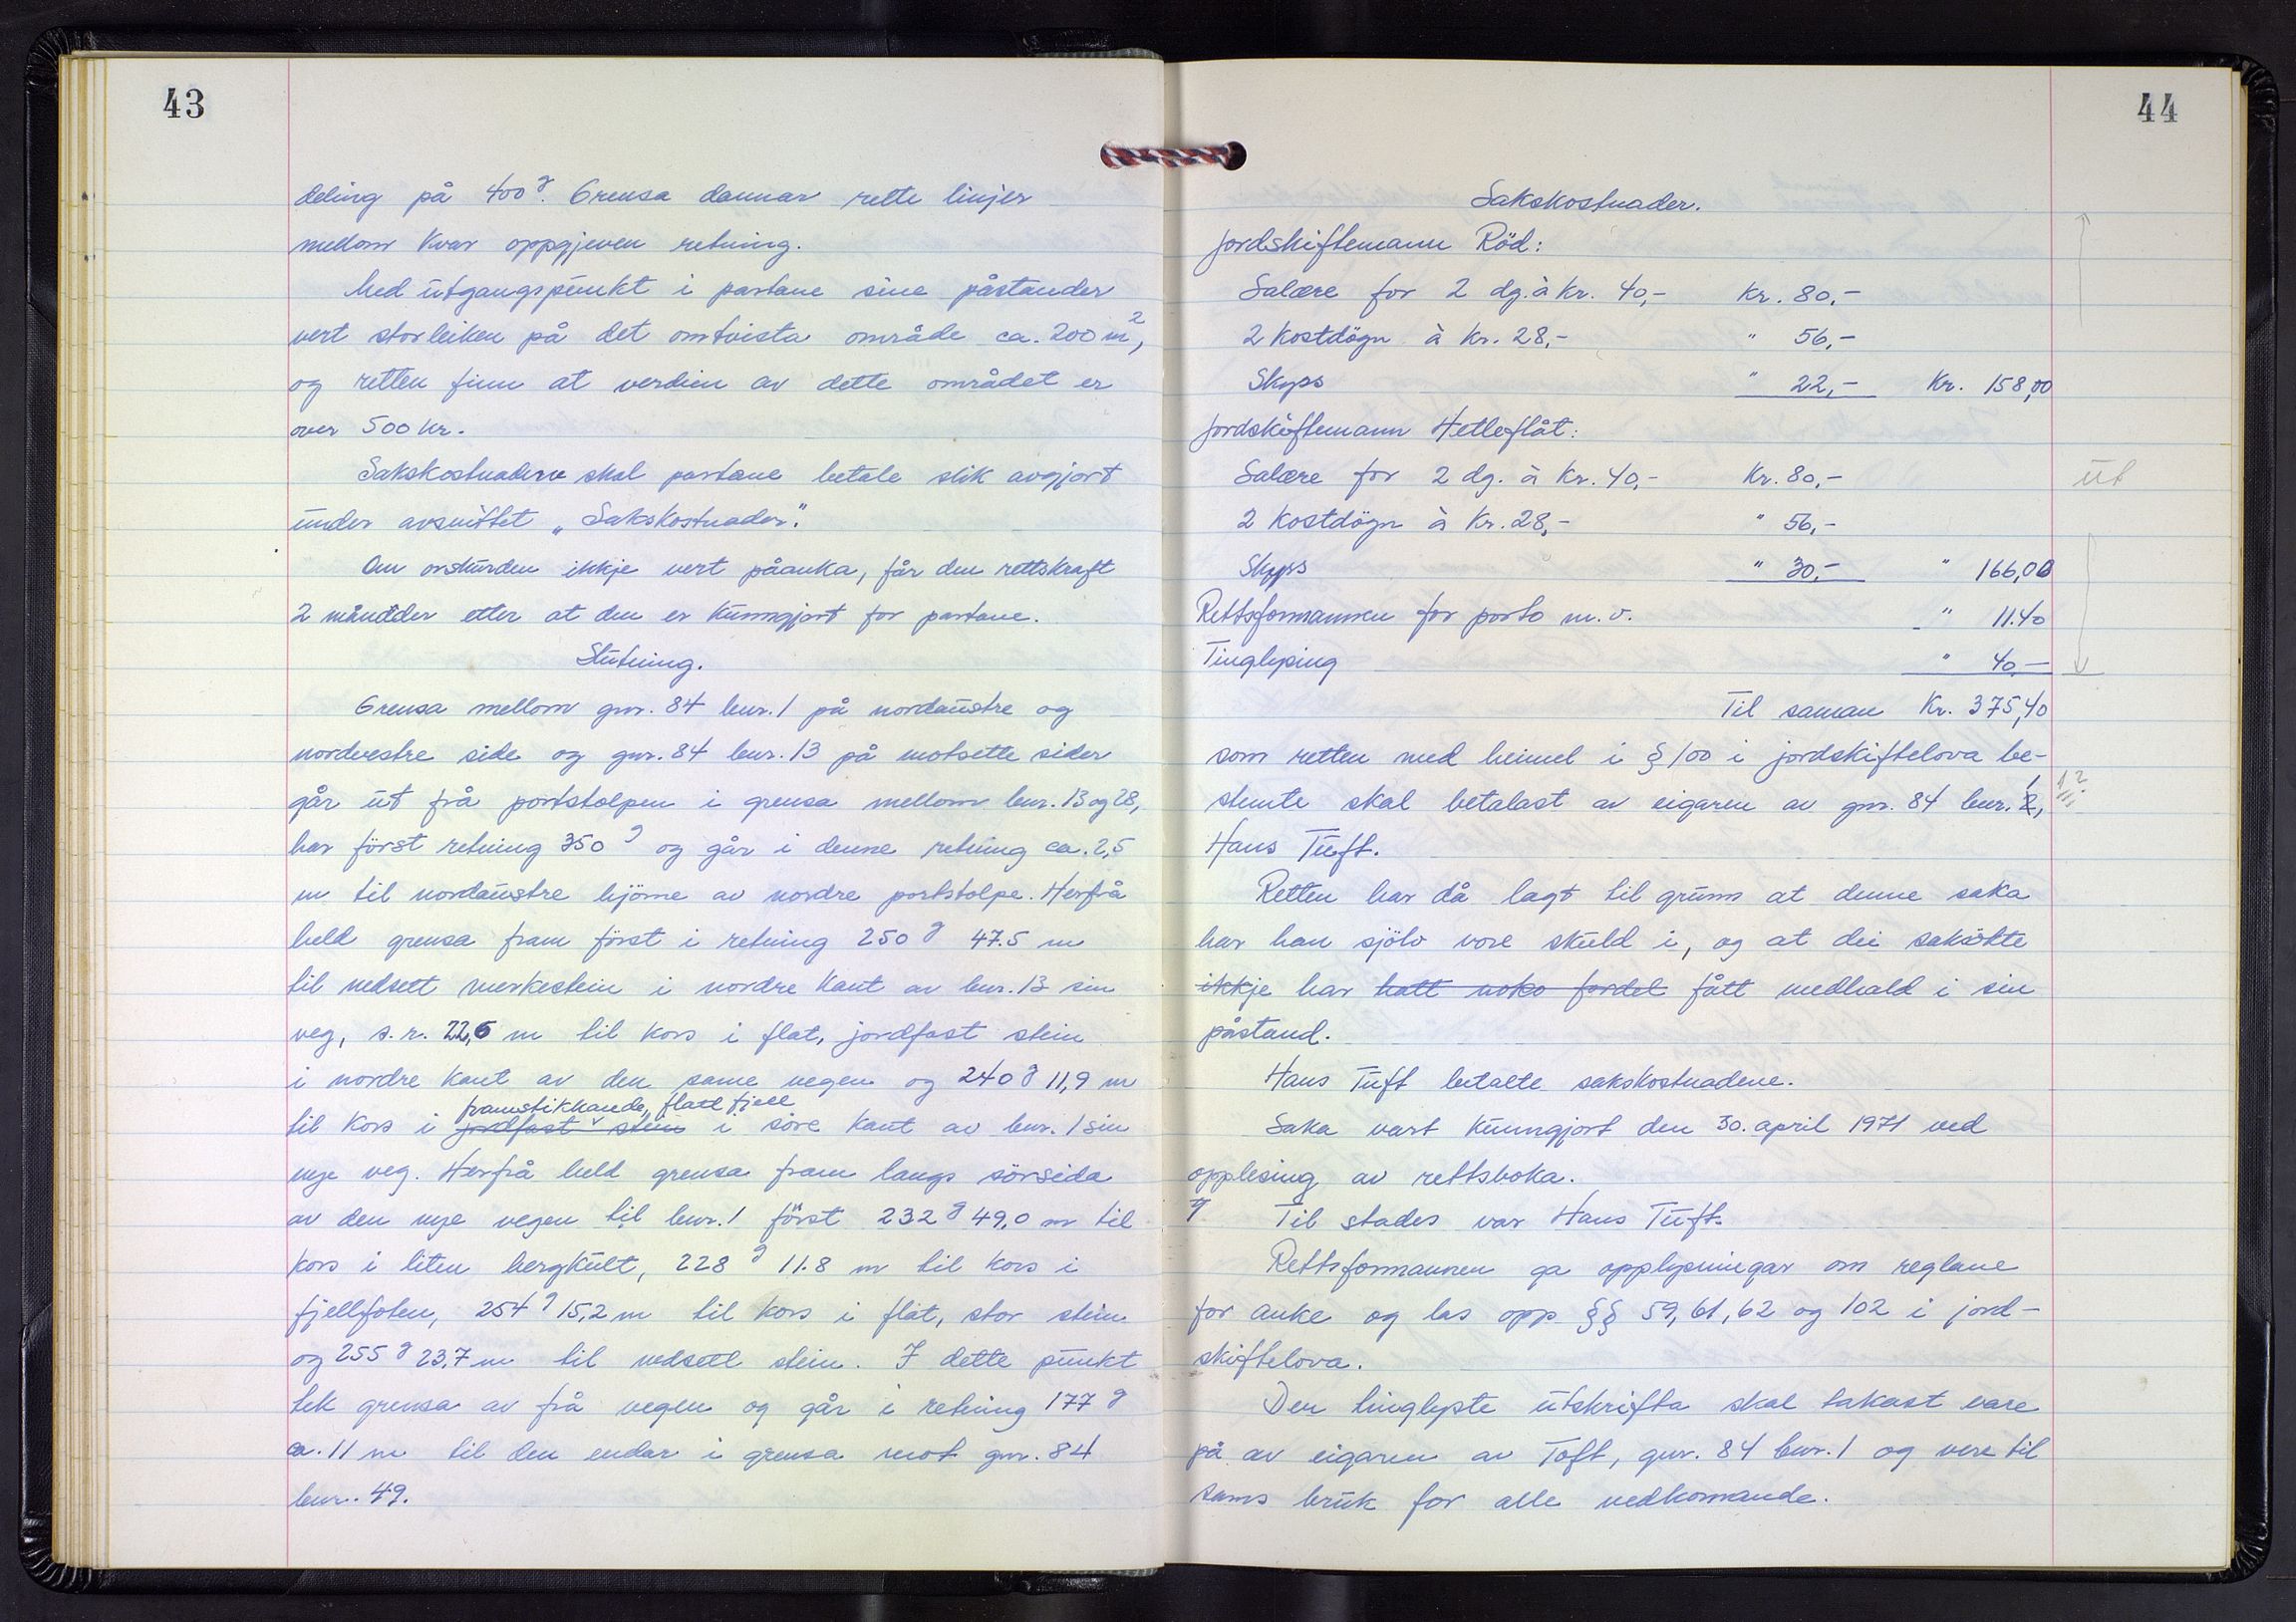 43
deling på 400g. Grensa dannar rette linjer
mellom kvar oppgjeven retning.
Med utgangspunkt i partane sine påstander
vert storleiken på det omtvista område ca. 200 m²,
og retten finn at verdien av dette området er
over 500 kr.
Sakskostnadene skal partane betale slik avgjort
under avsnittet „Sakskostnader".
Om orskurden ikkje vert påanka, får den rettskraft
2 månader etter at den er kunngjort for partane.
Slutning.
Grensa mellom gnr. 84 bnr. 1 på nordaustre og
nordvestre side og gnr. 84 bnr. 13 på motsette sider
går ut frå portstolpen i grensa mellom bnr. 13 og 28,
har først retning 350 g og går i denne retning ca. 2,5
m til nordaustre hjörne av nordre portstolpe. Herfrå
held grensa fram först i retning 250 g 47.5 m
til nedsett merkestein i nordre kant av bnr. 13 sin
veg, s.r. 22,6 m til kors i flat, jordfast stein
i nordre kant av den same vegen og 240 g 11,9 m
framstikkande, flatt fjell
til kors i jordfast stein i söre kant av bnr. 1 sin
nye veg. Herfrå held grensa fram langs sörsida
av den nye vegen til bnr. 1 først 232 g 49,0 m til
kors i liten bergkult, 228 g 11.8 m til kors i
fjellfoten, 254 g 15,2 m til kors i flat, stor stein
og 255 g 23,7 m til nedsett stein. I dette punkt
tek grensa av frå vegen og går i retning 177 g
ca. 11 m til den endar i grensa mot gnr. 84
bnr. 49.
44
Sakskostnader.
Jordskiftemann Röd:
Salære for 2 dg. à kr. 40,- kr. 80,-
2 kostdögn à kr. 28,- " 56,-
Skyss " 22,- Kr. 158,00
Jordskiftemann Hetleflåt:
Salære for 2 dg. à kr. 40,- Kr. 80,-
ut
2 kostdögn à kr. 28,- " 56,-
Skyss " 30,- " 166,00
Rettsformannen for porto m.v. " 11.40
Tinglysing " 40,-
Til saman Kr. 375,40
som retten med heimel i § 100 i jordskiftelova be-
stemte skal betalast av eigaren av gnr. 84 bnr. 1,
1?
Hans Tuft.
Retten har då lagt til grunn at denne saka
har han sjölv vore skuld i, og at dei saksökte
ikkje har hatt noko fordel fått medhald i sin
påstand.
Hans Tuft betalte sakskostnadene.
Saka vart kunngjort den 30. april 1971 ved
opplesing av rettsboka.
Til stades var Hans Tuft.
Rettsformannen ga opplysningar om reglane
for anke og las opp §§ 59, 61, 62 og 102 i jord-
skiftelova.
Den tinglyste utskrifta skal takast vare
på av eigaren av Toft, gnr. 84 bnr. 1 og vere til
sams bruk for alle vedkomande.